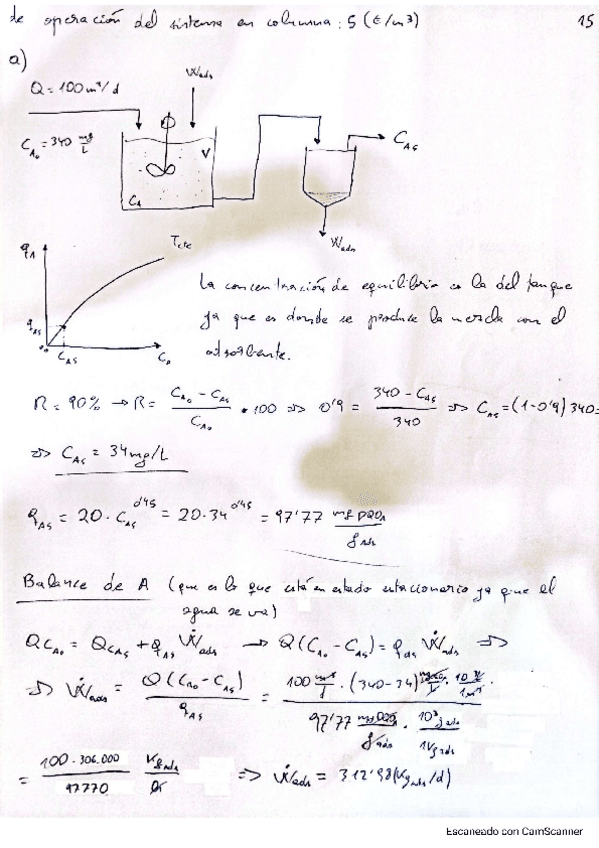 de operación del sistema en columna: 5 (€/m³)
15
a)
Ẇads
Q = 100 m³/d
C_A0 = 340 mg/L
V
C_A
C_AS
Ẇads
q_A
T cte
q_AS
C_AS
La concentración de equilibrio es la del tanque
ya que es donde se produce la mezcla con el
adsorbente.
R = 90% → R = (C_A0 - C_AS)/C_A0 · 100 ⇒ 0'9 = (340 - C_AS)/340 ⇒ C_AS = (1-0'9) 340 =
⇒ C_AS = 34 mg/L
q_AS = 20 · C_AS^0'45 = 20 · 34^0'45 = 97'77 mg DQO/g Ads
Balance de A (que es lo que está en estado estacionario ya que el
agua se va)
Q C_A0 = Q C_AS + q_AS Ẇads → Q (C_A0 - C_AS) = q_AS Ẇads ⇒
⇒ Ẇads = Q (C_A0 - C_AS)/q_AS = 100 m³/d · (340-34) mg DQO/L · 10³ L/1 m³ ·
97'77 mg DQO/g ads · 10³ g ads/1 Kg ads
= 100 · 306.000/97770 Kg ads/d ⇒ Ẇads = 312'98 (Kg ads/d)
Escaneado con CamScanner